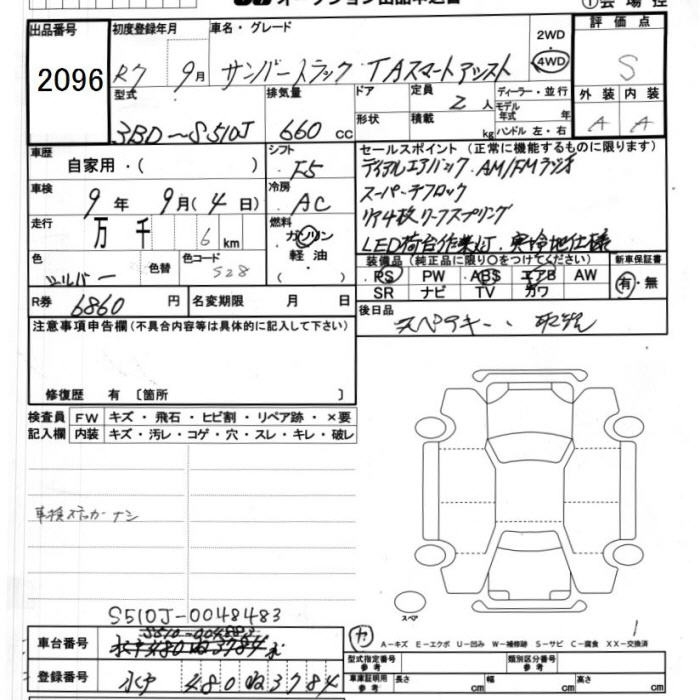 出品番号 初度登録年月 車名・グレード 2WD 評価点
2096 R7 9月 サンバートラック TAスマートアシスト 4WD S
型式 排気量 ドア 定員 ディーラー・並行 外装 内装
3BD-S510J 660cc 形状 2人 モデル年式 年 A A
積載 kg ハンドル 左・右
車歴 シフト セールスポイント(正常に機能するものに限ります)
自家用・( ) F5 AM/FMラジオ
車検 冷房 スーパーデフロック
9年 9月(4日) AC リア4枚リーフスプリング
走行 燃料 LED荷台作業灯
万 千 6km ガソリン
軽油
色 色替 色コード 装備品(純正品に限り○をつけてください) 新車保証書
シルバー S28 PS PW ABS エアB AW 有・無
SR ナビ TV カワ
R券 6860円 名変期限 月 日 後日品
スペアキー、取説
注意事項申告欄(不具合内容等は具体的に記入して下さい)
修復歴 有〔箇所 〕
検査員 FW キズ・飛石・ヒビ割・リペア跡・×要
記入欄 内装 キズ・汚レ・コゲ・穴・スレ・キレ・破レ
車検ステッカーナシ
スペア
S510J-0048483
車台番号
A-キズ E-エクボ U-凹み W-補修跡 S-サビ C-腐食 XX-交換済
型式指定番号 参考 類別区分番号 参考
登録番号 480 3784 車庫証明用 参考 長さ cm 幅 cm 高さ cm